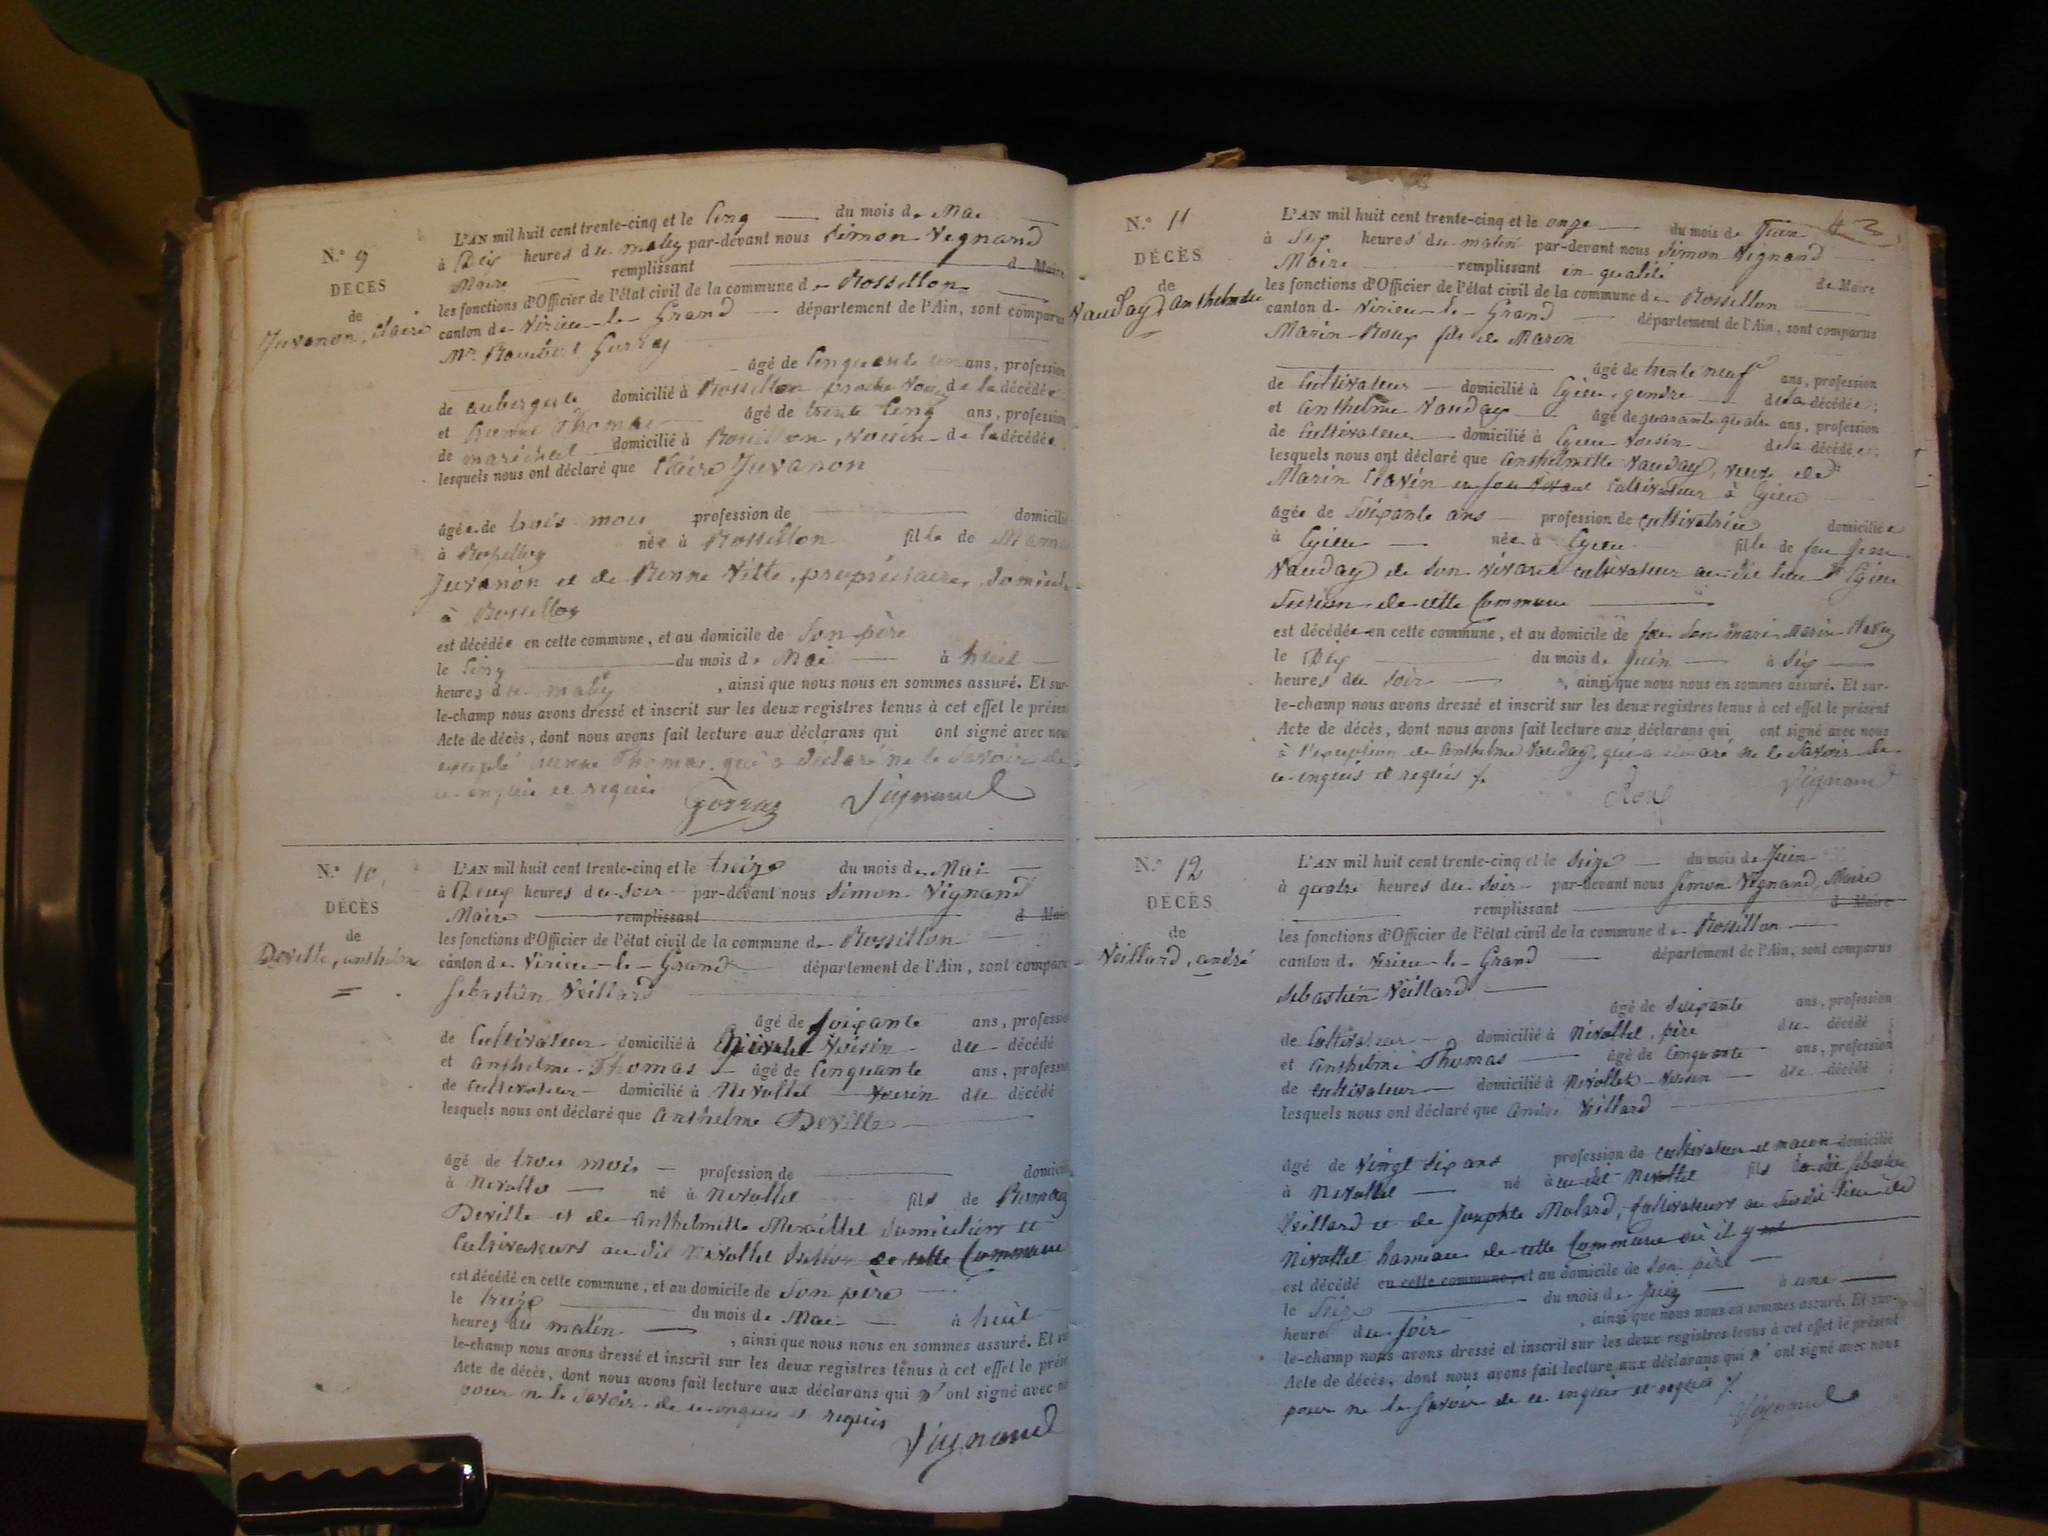 N.° 9
DÉCÈS
de
Juvanon, Claire
L'AN mil huit cent trente-cinq et le Cinq du mois de Mai
à Dix heures du matin par-devant nous Simon Vignand
Maire remplissant d Maire
les fonctions d'Officier de l'état civil de la commune de Rossillon
canton de Virieu-le-Grand département de l'Ain, sont comparus
Mr.
âgé de Cinquante ans, profession
de aubergiste domicilié à Rossillon de la décédée
et Thomas âgé de trente Cinq ans, profession
de maréchal domicilié à Rossillon, voisin de la décédée
lesquels nous ont déclaré que Claire Juvanon
âgée de trois mois profession de domicilié
à Rossillon née à Rossillon fille de
Juvanon et de Vitte, propriétaires, domiciliés
à Rossillon
est décédée en cette commune, et au domicile de Son père
le Cinq du mois de Mai à huit
heures du matin, ainsi que nous nous en sommes assuré. Et sur-
le-champ nous avons dressé et inscrit sur les deux registres tenus à cet effet le présent
Acte de décès, dont nous avons fait lecture aux déclarans qui ont signé avec nous
excepté Thomas qui a déclaré ne le Savoir de
ce enquis et requis
Vignand
N.° 10
DÉCÈS
de
Deville, anthelme
L'AN mil huit cent trente-cinq et le treize du mois de Mai
à Deux heures du soir par-devant nous Simon Vignand
Maire remplissant d Maire
les fonctions d'Officier de l'état civil de la commune de Rossillon
canton de Virieu-le-Grand département de l'Ain, sont comparus
Sebastien Veillard
âgé de Soixante ans, profession
de Cultivateur domicilié à Nivollet Voisin du décédé
et anthelme Thomas âgé de Cinquante ans, profession
de cultivateur domicilié à Nivollet Voisin du décédé
lesquels nous ont déclaré que anthelme Deville
âgé de trois mois profession de domicilié
à Nivollet né à Nivollet fils de
Deville et de anthelmette domiciliers et
Cultivateurs au dit Nivollet Section de cette Commune
est décédé en cette commune, et au domicile de Son père
le treize du mois de Mai à huit
heures du matin, ainsi que nous nous en sommes assuré. Et sur-
le-champ nous avons dressé et inscrit sur les deux registres tenus à cet effet le présent
Acte de décès, dont nous avons fait lecture aux déclarans qui n'ont signé avec nous
pour ne le Savoir de ce enquis et requis
Vignand
43
N.° 11
DÉCÈS
de
Vauday anthelmette
L'AN mil huit cent trente-cinq et le onze du mois de Juin
à Six heures du matin par-devant nous Simon Vignand
Maire remplissant en qualité de Maire
les fonctions d'Officier de l'état civil de la commune de Rossillon
canton de Virieu-le-Grand département de l'Ain, sont comparus
Marin Roux fils de Marin
âgé de trente neuf ans, profession
de Cultivateur domicilié à Egieu, gendre de la décédée;
et anthelme Vauday âgé de quarante quatre ans, profession
de Cultivateur domicilié à Egieu Voisin de la décédée;
lesquels nous ont déclaré que anthelmette Vauday, veuve de
Marin en son vivant Cultivateur à Egieu
âgée de Soixante ans profession de cultivatrice domiciliée
à Egieu née à Egieu fille de feu Jean
Vauday de Son vivant cultivateur au dit lieu d'Egieu
Section de cette Commune
est décédée en cette commune, et au domicile de feu Son mari Marin
le Dix du mois de Juin à Six
heures du Soir, ainsi que nous nous en sommes assuré. Et sur-
le-champ nous avons dressé et inscrit sur les deux registres tenus à cet effet le présent
Acte de décès, dont nous avons fait lecture aux déclarans qui ont signé avec nous
à l'exception de Anthelme Vauday, qui a déclaré ne le Savoir de
ce enquis et requis
Roux Vignand
N.° 12
DÉCÈS
de
Veillard, andré
L'AN mil huit cent trente-cinq et le Seize du mois de Juin
à quatre heures du Soir par-devant nous Simon Vignand, Maire
remplissant d Maire
les fonctions d'Officier de l'état civil de la commune de Rossillon
canton de Virieu-le-Grand département de l'Ain, sont comparus
Sebastien Veillard
âgé de Soixante ans, profession
de Cultivateur domicilié à Nivollet, père du décédé;
et Anthelme Thomas âgé de Cinquante ans, profession
de cultivateur domicilié à Nivollet Voisin du décédé;
lesquels nous ont déclaré que andré Veillard
âgé de Vingt Six ans profession de cultivateur et macon domicilié
à Nivollet né au dit Nivollet fils du dit Sebastien
Veillard et de Josephte Molard, Cultivateurs au Susdit lieu de
Nivollet hameau de cette Commune où il y
est décédé en cette commune, et au domicile de Son père
le Seize du mois de Juin à une
heure du Soir, ainsi que nous nous en sommes assuré. Et sur-
le-champ nous avons dressé et inscrit sur les deux registres tenus à cet effet le présent
Acte de décès, dont nous avons fait lecture aux déclarans qui n'ont signé avec nous
pour ne le Savoir de ce enquis et requis
Vignand